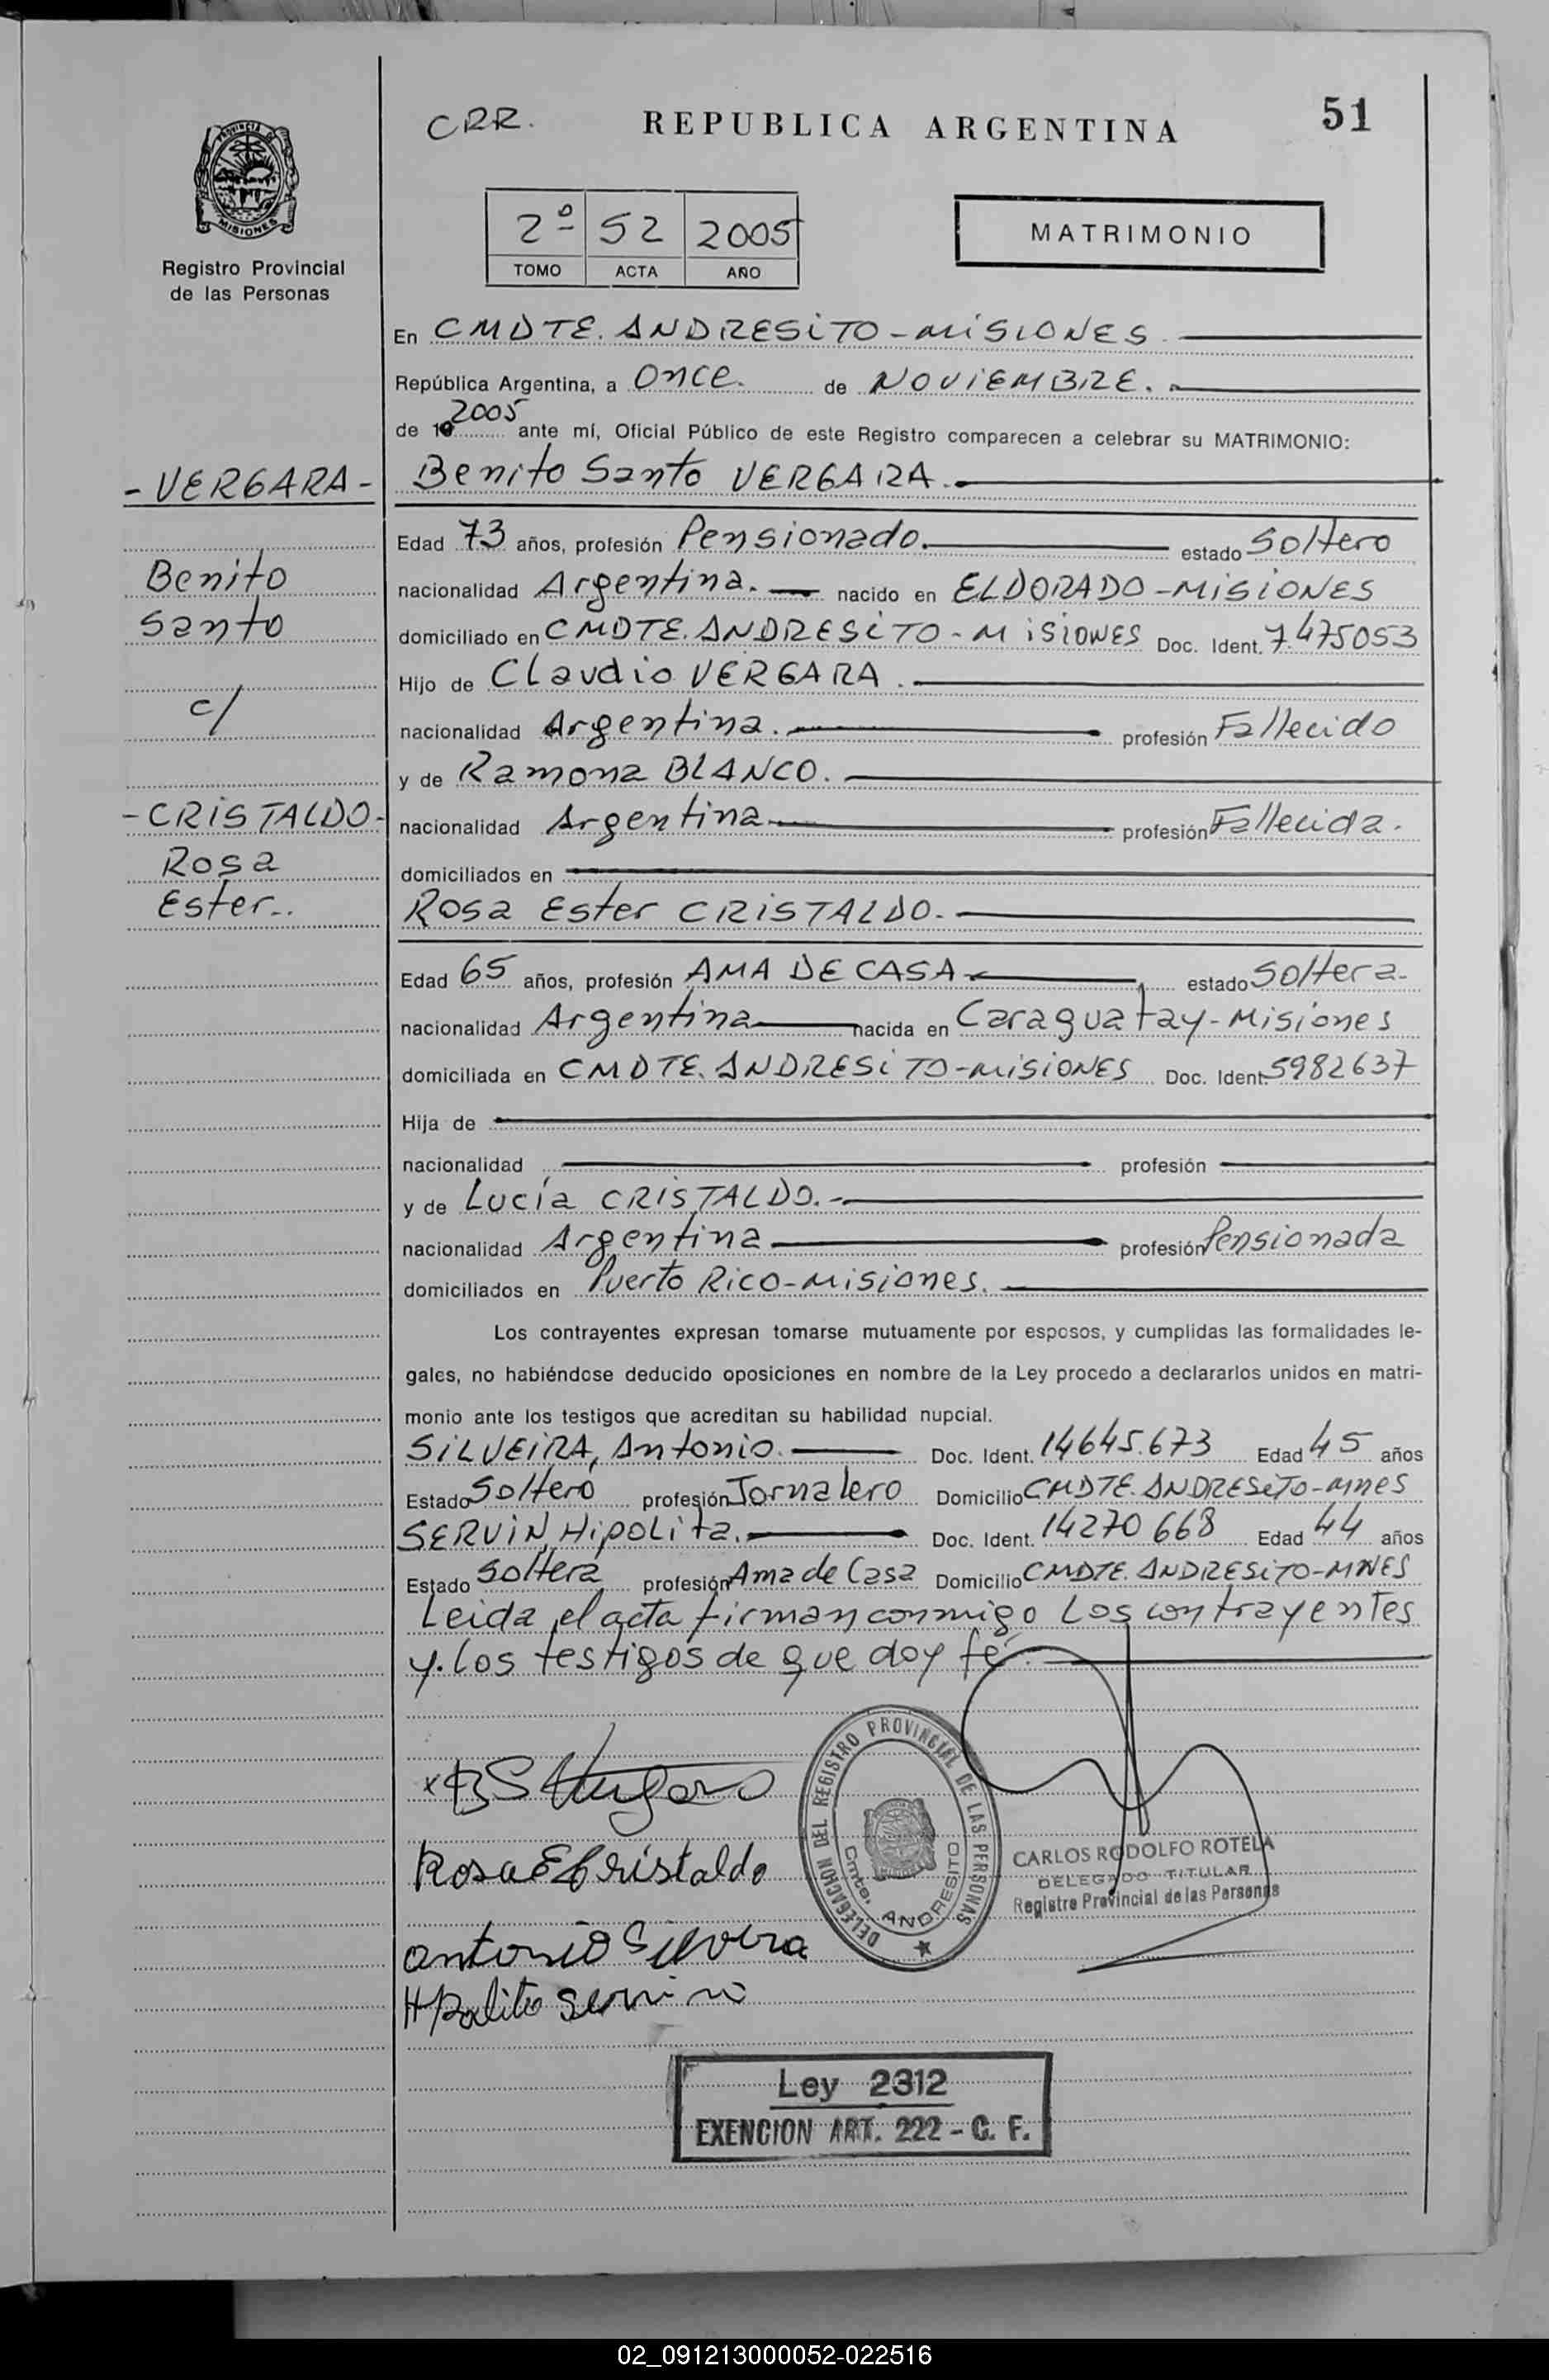 CRR.
REPUBLICA ARGENTINA
51
PROVINCIA DE
MISIONES
Registro Provincial
de las Personas
2º 52 2005
TOMO ACTA AÑO
MATRIMONIO
En CMDTE. ANDRESITO - MISIONES
República Argentina, a Once. de NOVIEMBRE.
de 19 2005 ante mí, Oficial Público de este Registro comparecen a celebrar su MATRIMONIO:
- VERGARA -
Benito Santo VERGARA.
Edad 73 años, profesión Pensionado. estado Soltero
Benito
nacionalidad Argentina. nacido en ELDORADO - MISIONES
Santo
domiciliado en CMDTE. ANDRESITO - MISIONES Doc. Ident. 7.475053
Hijo de Claudio VERGARA.
c/
nacionalidad Argentina. profesión Fallecido
y de Ramona BLANCO.
- CRISTALDO -
nacionalidad Argentina profesión Fallecida.
Rosa
domiciliados en
Ester..
Rosa Ester CRISTALDO.
Edad 65 años, profesión AMA DE CASA estado Soltera
nacionalidad Argentina nacida en Caraguatay - Misiones
domiciliada en CMDTE. ANDRESITO - MISIONES Doc. Ident. 5982637
Hija de
nacionalidad profesión
y de Lucía CRISTALDO.
nacionalidad Argentina profesión Pensionada
domiciliados en Puerto Rico - Misiones.
Los contrayentes expresan tomarse mutuamente por esposos, y cumplidas las formalidades le-
gales, no habiéndose deducido oposiciones en nombre de la Ley procedo a declararlos unidos en matri-
monio ante los testigos que acreditan su habilidad nupcial.
SILVEIRA, Antonio. Doc. Ident. 14645.673 Edad 45 años
Estado Soltero profesión Jornalero Domicilio CMDTE. ANDRESITO - MNES
SERVIN, Hipolita. Doc. Ident. 14270668 Edad 44 años
Estado Soltera profesión Ama de Casa Domicilio CMDTE. ANDRESITO - MNES
Leida el acta firman conmigo Los contrayentes
y los testigos de que doy fé.
x BS Vergara
Rosa E Cristaldo
antonio Silveira
Hipolita servin
DELEGACION DEL REGISTRO PROVINCIAL DE LAS PERSONAS
Cmte. ANDRESITO
CARLOS RODOLFO ROTELA
DELEGADO TITULAR
Registro Provincial de las Personas
Ley 2312
EXENCION ART. 222 - C. F.
02_091213000052-022516